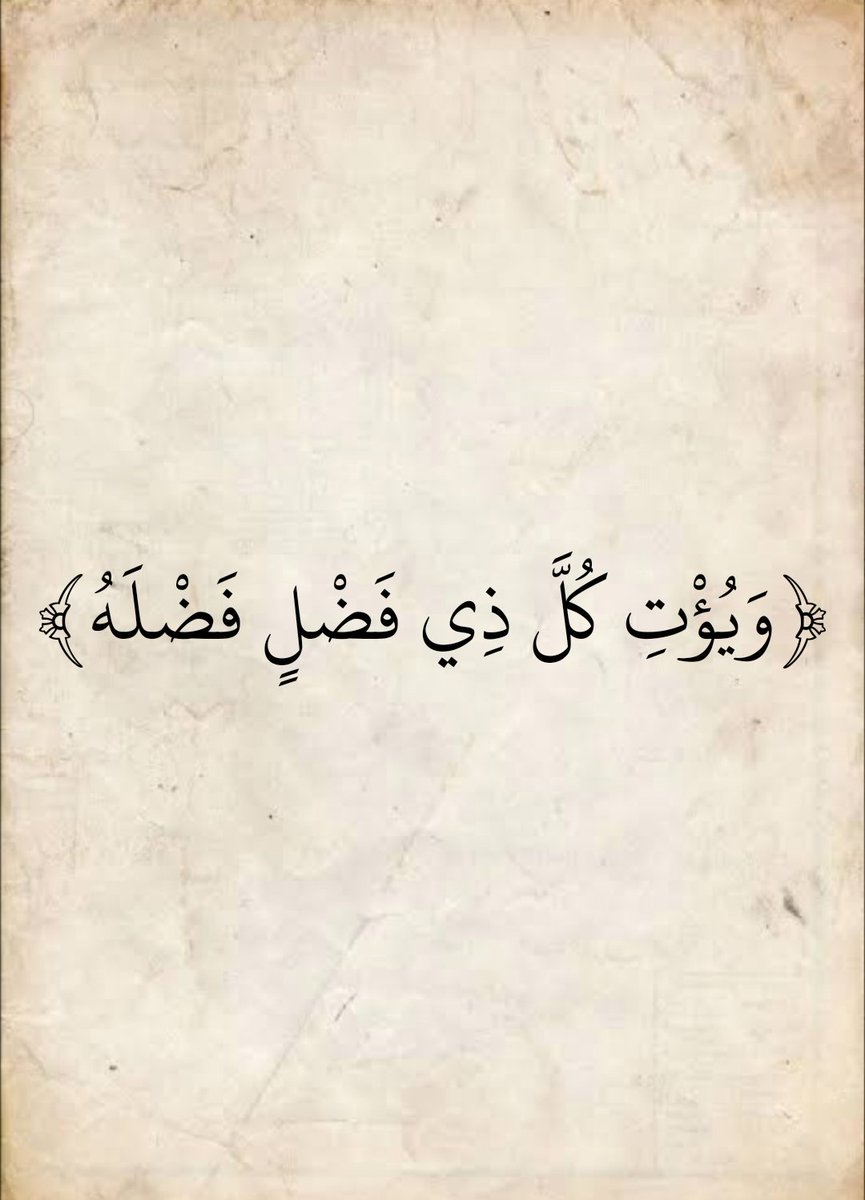 ﴿وَيُؤْتِ كُلَّ ذِي فَضْلٍ فَضْلَهُ﴾